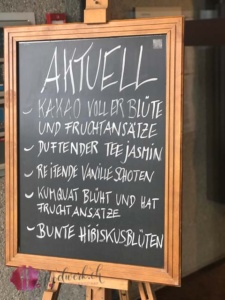 AKTUELL
- KAKAO VOLLER BLÜTE
UND FRUCHTANSÄTZE
- DUFTENDER TEEJASMIN
- REITENDE VANILLESCHOTEN
- KUMQUAT BLÜHT UND HAT
FRUCHTANSÄTZE
- BUNTE HIBISKUSBLÜTEN